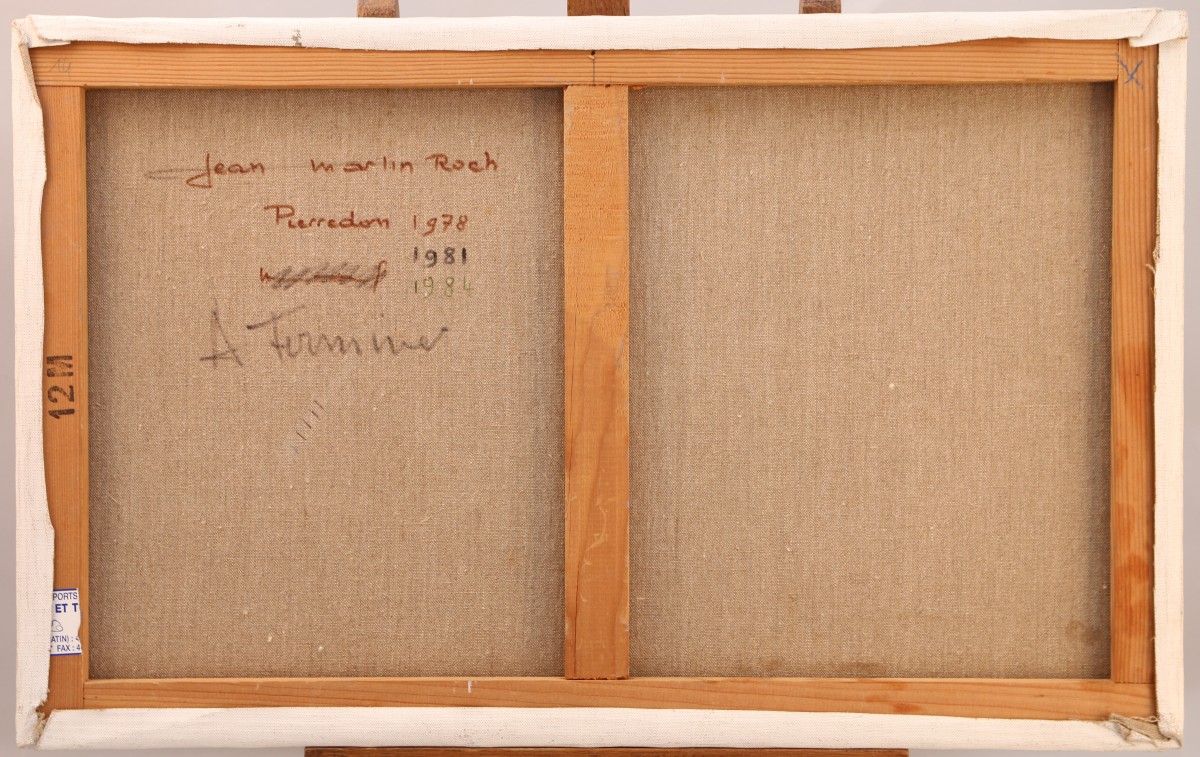 14
Jean Martin Roch
Pierredon 1978
1981
1984
A Terminer
12 M
PORTS
ET T
ATIN) : 4
FAX : 4